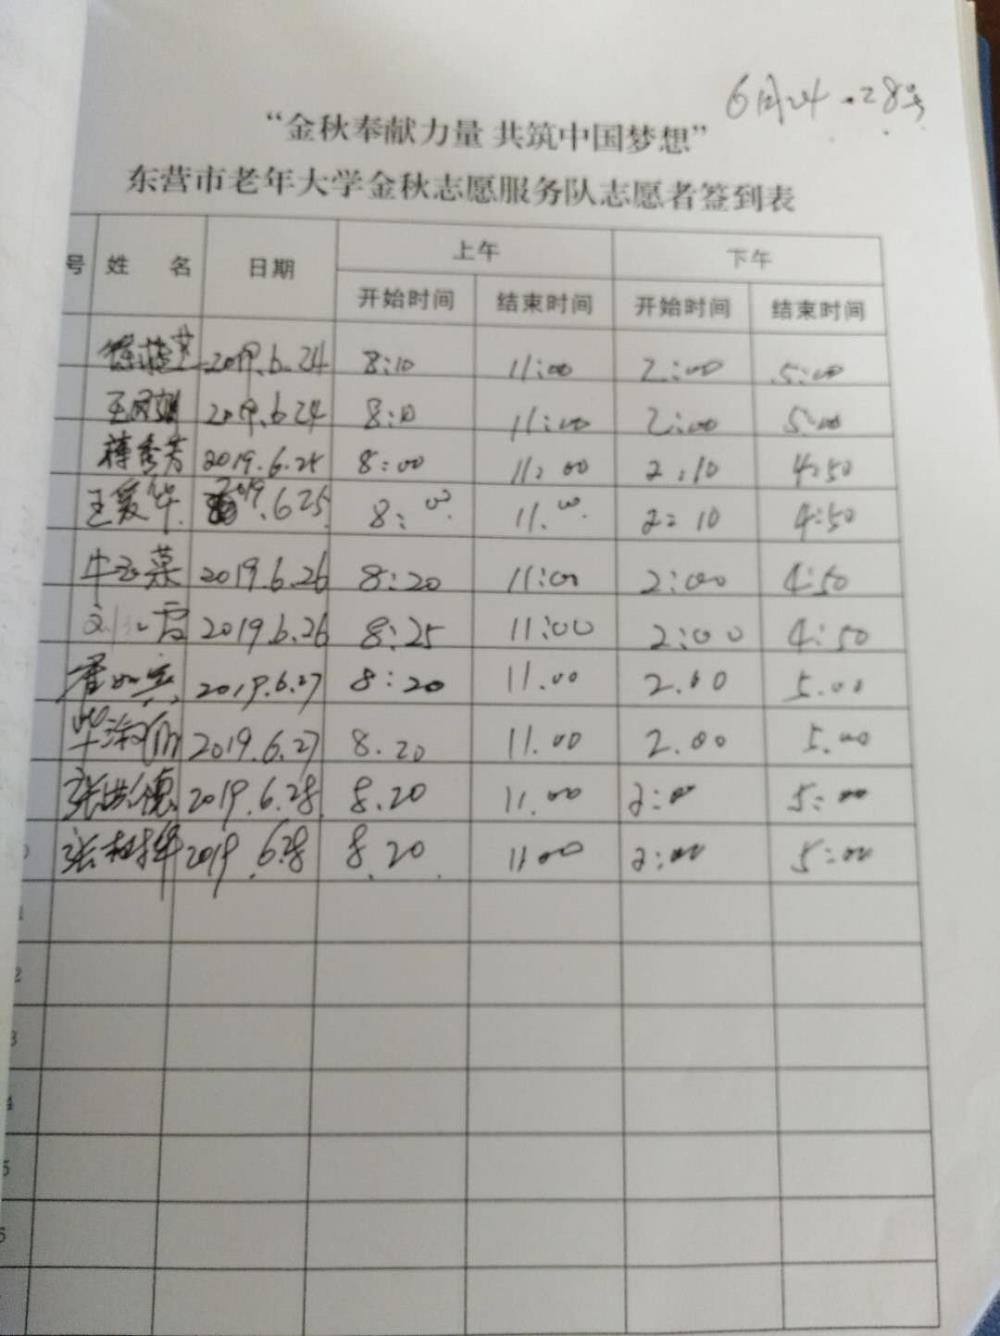 6月24.28号
“金秋奉献力量 共筑中国梦想”
东营市老年大学金秋志愿服务队志愿者签到表
号 姓 名 日期 上午 下午
开始时间 结束时间 开始时间 结束时间
2019.6.24 8:10 11:00 2:00 5:00
2019.6.24 8:10 11:00 2:00 5:00
秀芳 2019.6.25 8:00 11:00 2:10 4:50
王爱华 2019.625 8:00 11.00 2:10 4:50
牛玉菜 2019.6.26 8:20 11:00 2:00 4:50
刘红霞 2019.6.26 8:25 11:00 2:00 4:50
2019.6.27 8:20 11.00 2.00 5.00
2019.6.27 8.20 11.00 2.00 5.00
张洪德 2019.6.28 8.20 11.00 2:00 5:00
张 2019.6.28 8.20 1100 2:00 5:00